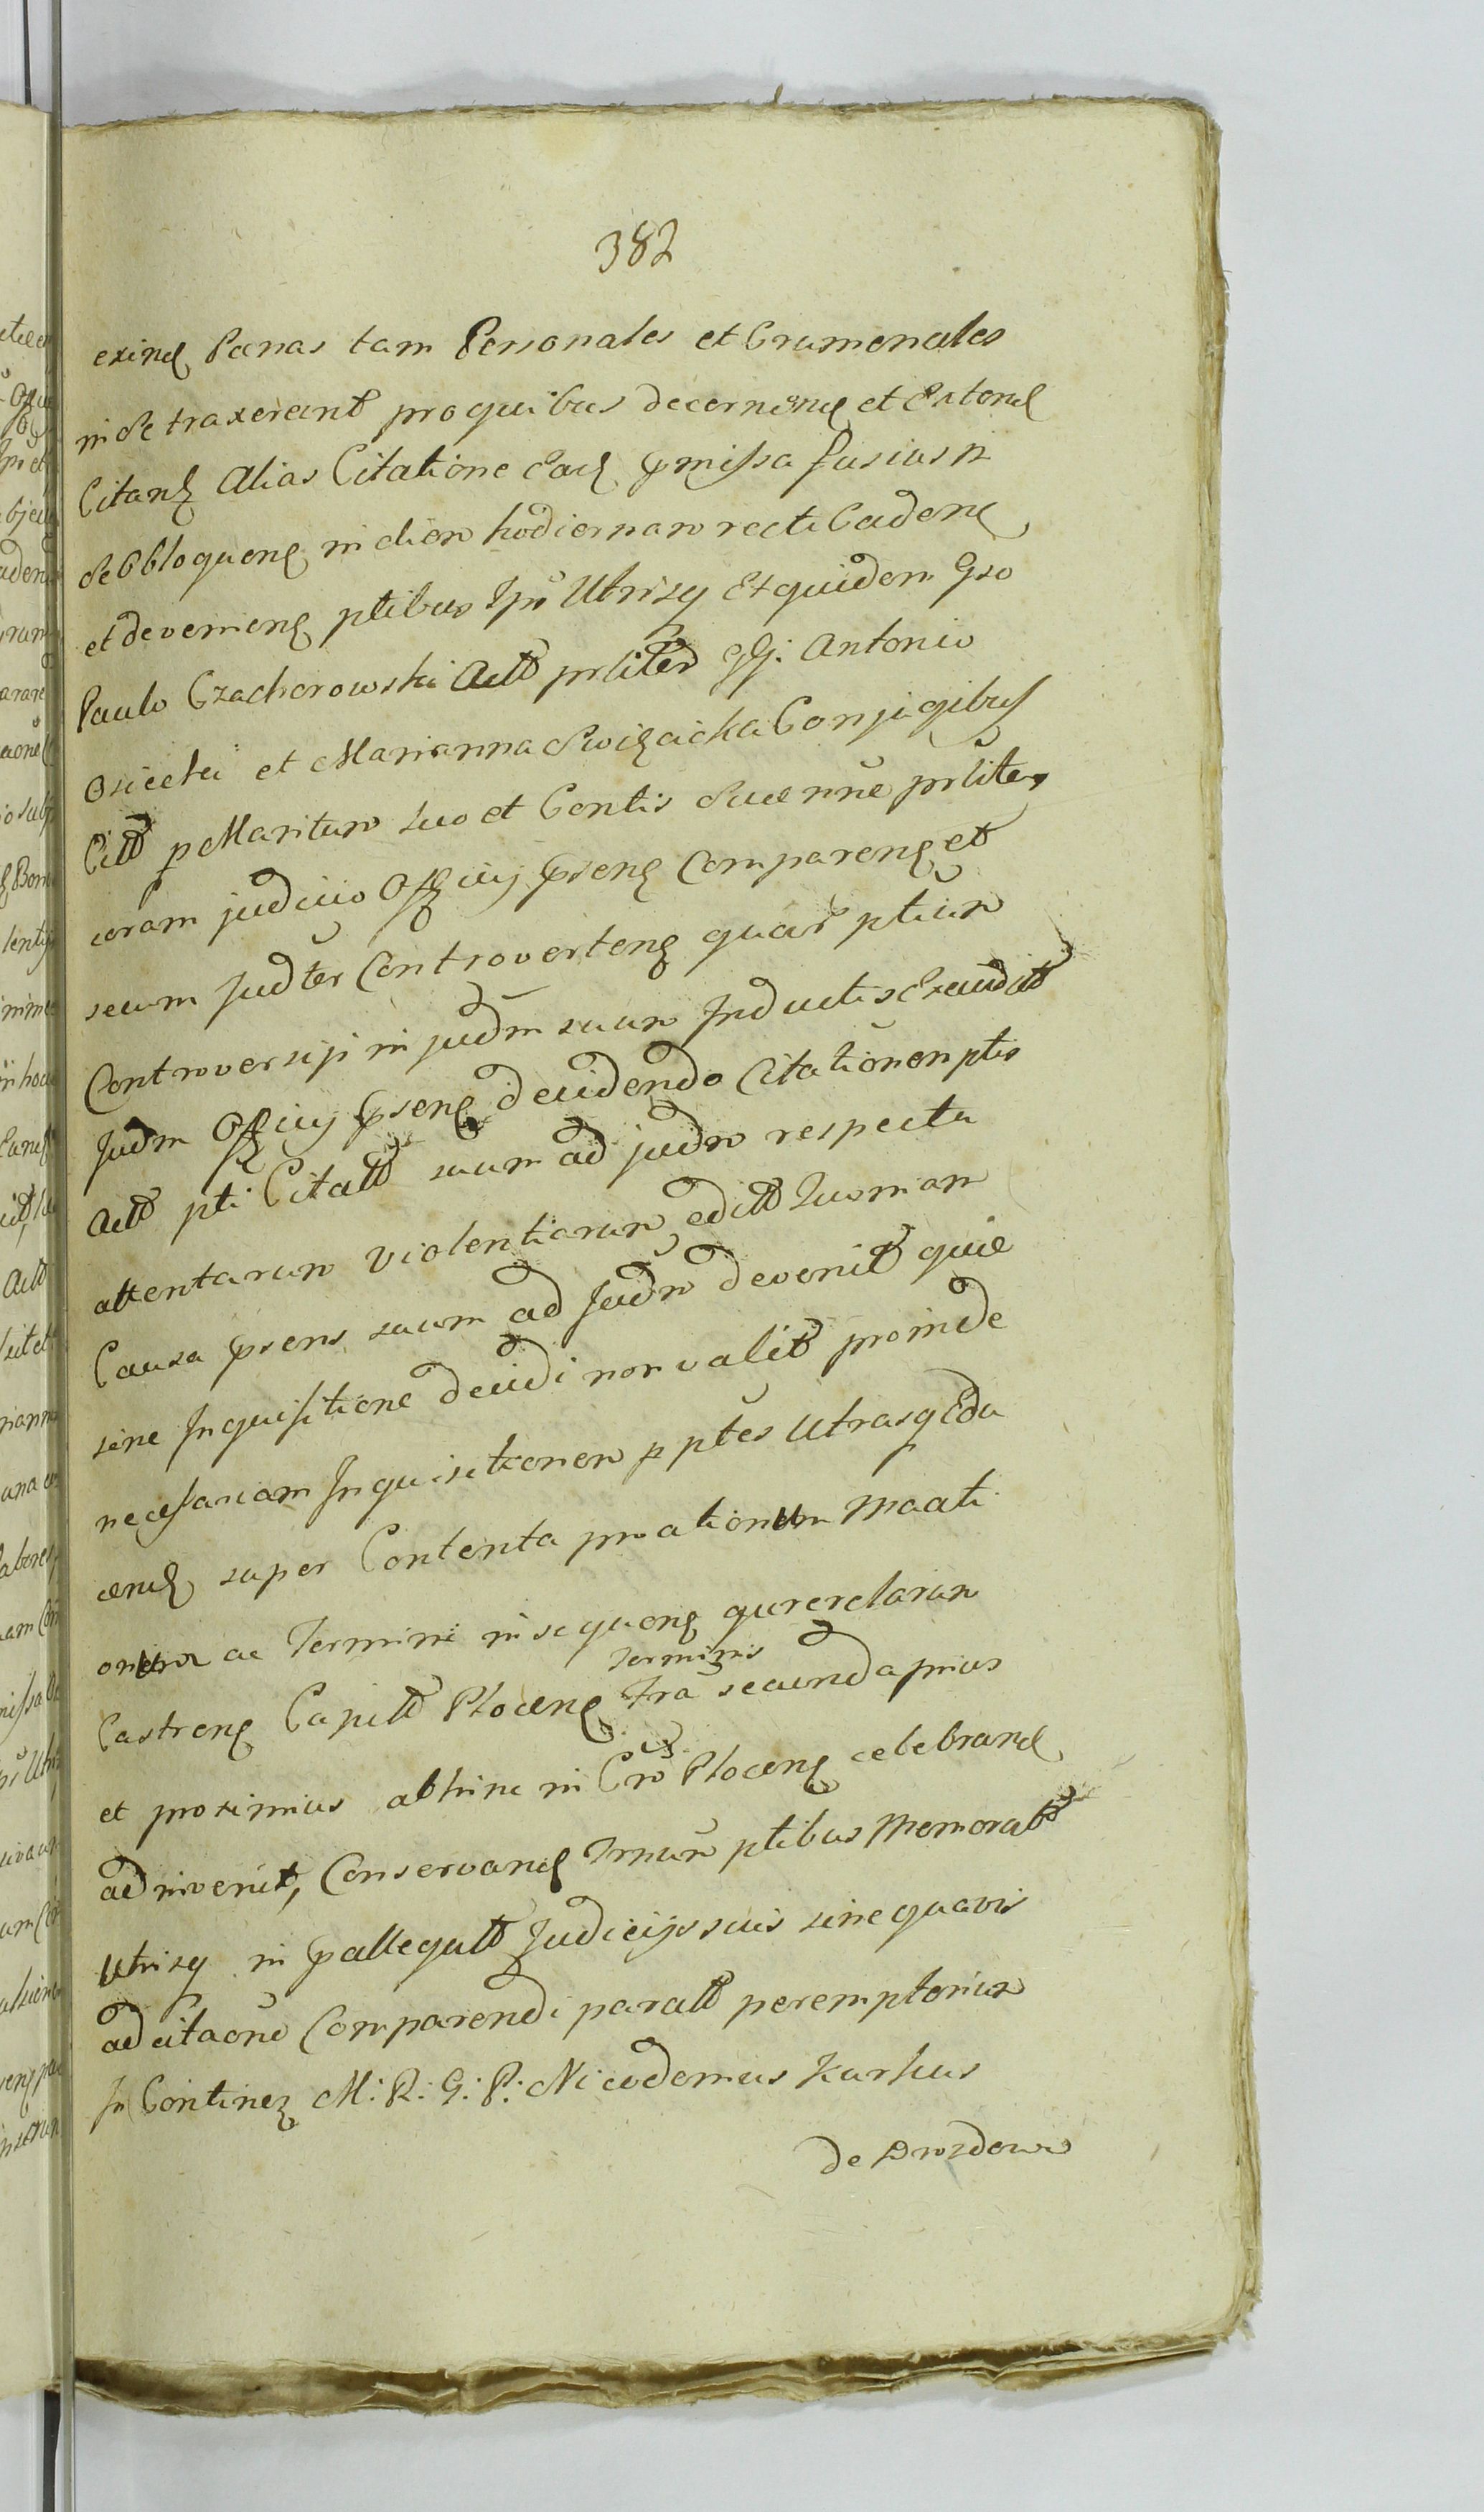 382
exind Pænas tam Personales et Crumenales
in Se traxerunt pro quibus decernend et Extend
Citand Alias Citatione Ead præmissa fusius in
Se Obloquens in diem hodiernam recte Cadens
et deveniens ptibus Ipũ Utrisq Et quidem Gso
Paulo Czachorowski Actt prliter GG. Antonio
Osiecki et Marianna Swięcicka Conjugibus
Citt p Maritum suo et Contis Suæ nñe prliter
coram judicio Offcij Præsens Comparens et
secum Judter Controvertens quar ptium
Controversiis in judm suum Inductis Exauditt
Judm Offcij Præsens decidendo Citationem ptis
Actt pti Citatt suum ad judm respectu
attentarum Violentiarum editt Quoniam
Causa præsens suum ad Judm devenit quæ
sine Inquisitione decidi non valet proinde
necessariam Inquisitionem p ptes Utrasq Edu
cend super Contenta proationum Maati
onum ac Termini insequens querelarum
Castrens Capitt Plocens Tra secunda prius
Terminis
et proximius abhinc in Cro Plocens celebrand
adinvenit, Conservand Trnum ptibus Memoratt
Utrisq in præallegatt Judicijs suis sine quavis
adcitaone Comparendi paratt peremptorium
In Continen M: R: G: P: Nicodemus Karhus
de Drozdowo